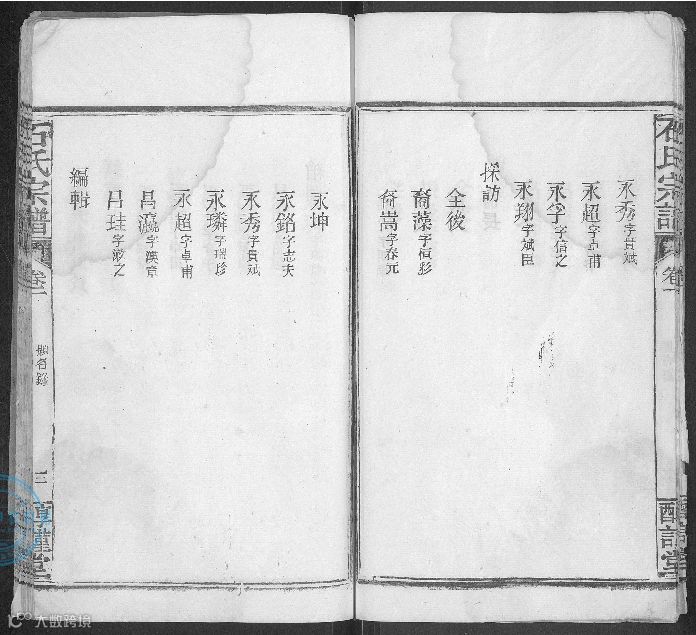 石氏宗譜
卷一
永秀字貢斌
永超字卓甫
永孚字信之
永翔字斌臣
採訪
全後
裔藻字恒彩
裔嵩字春元
永坤
永銘字志夫
永秀字貢斌
永璘字瑞珍
永超字卓甫
昌瀛字漢章
呂珪字
編輯
石氏宗譜
卷一
三
堂
大数跨境